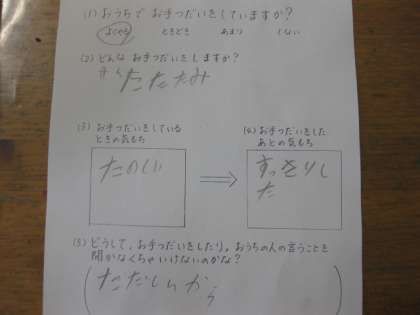 (1) おうちでお手つだいをしていますか?
よくやる ときどき あまり しない
(2) どんなお手つだいをしますか?
たたみ
(3) お手つだいをしている
ときの気もち
(4) お手つだいをした
あとの気もち
たのしい
すっきりし
た
(5) どうして、お手つだいをしたり、おうちの人の言うことを
聞かなくちゃいけないのかな?
ただしいから